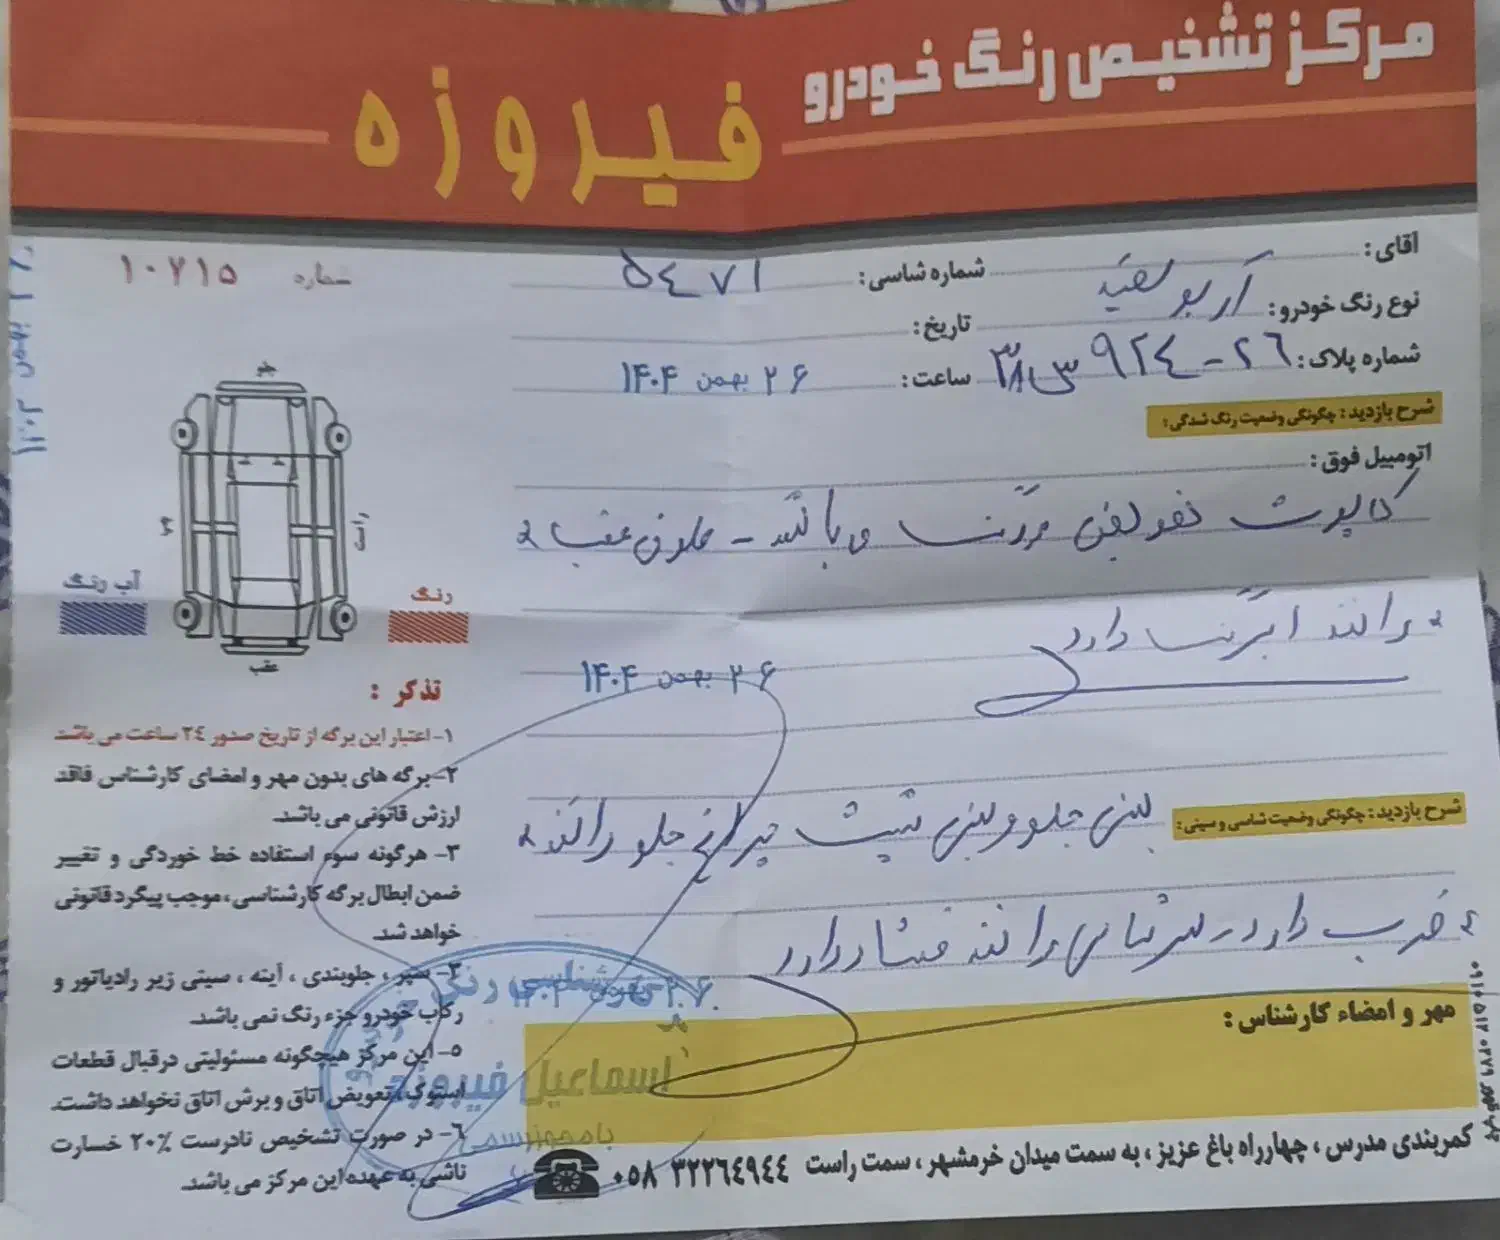 مرکز تشخیص رنگ خودرو
فیروزه
آقای :
شماره شاسی : ۵۴۷۱
شماره ۱۰۷۱۵
نوع رنگ خودرو : سفید
تاریخ :
شماره پلاک : ۲۶ - ۹۲۴ س ۳۸
ساعت : ۲۶ بهمن ۱۴۰۴
شرح بازدید : چگونگی وضعیت رنگ شدگی :
اتومبیل فوق :
کاپوت تعویض می باشد - ستون عقب
راننده دارد
۲۶ بهمن ۱۴۰۴
شرح بازدید : چگونگی وضعیت شاسی و سینی :
سینی جلو و سینی پشت چراغ جلو راننده
ضرب دارد - سرشاسی راننده فشار دارد
مهر و امضاء کارشناس :
اسماعیل فیروزه
جلو
چپ
راست
عقب
آب رنگ
رنگ
تذکر :
۱- اعتبار این برگه از تاریخ صدور ۲۴ ساعت می باشد
۲- برگه های بدون مهر و امضای کارشناس فاقد
ارزش قانونی می باشد.
۳- هرگونه سوء استفاده خط خوردگی و تغییر
ضمن ابطال برگه کارشناسی ، موجب پیگرد قانونی
خواهد شد.
۴- سپر ، جلوبندی ، آینه ، سینی زیر رادیاتور و
رکاب خودرو جزء رنگ نمی باشد.
۵- این مرکز هیچگونه مسئولیتی در قبال قطعات
استوک ، تعویض اتاق و برش اتاق نخواهد داشت.
۶- در صورت تشخیص نادرست ۲۰٪ خسارت
ناشی به عهده این مرکز می باشد.
کمربندی مدرس ، چهارراه باغ عزیز ، به سمت میدان خرمشهر ، سمت راست ۰۵۸ ۳۲۲۶۴۹۴۴